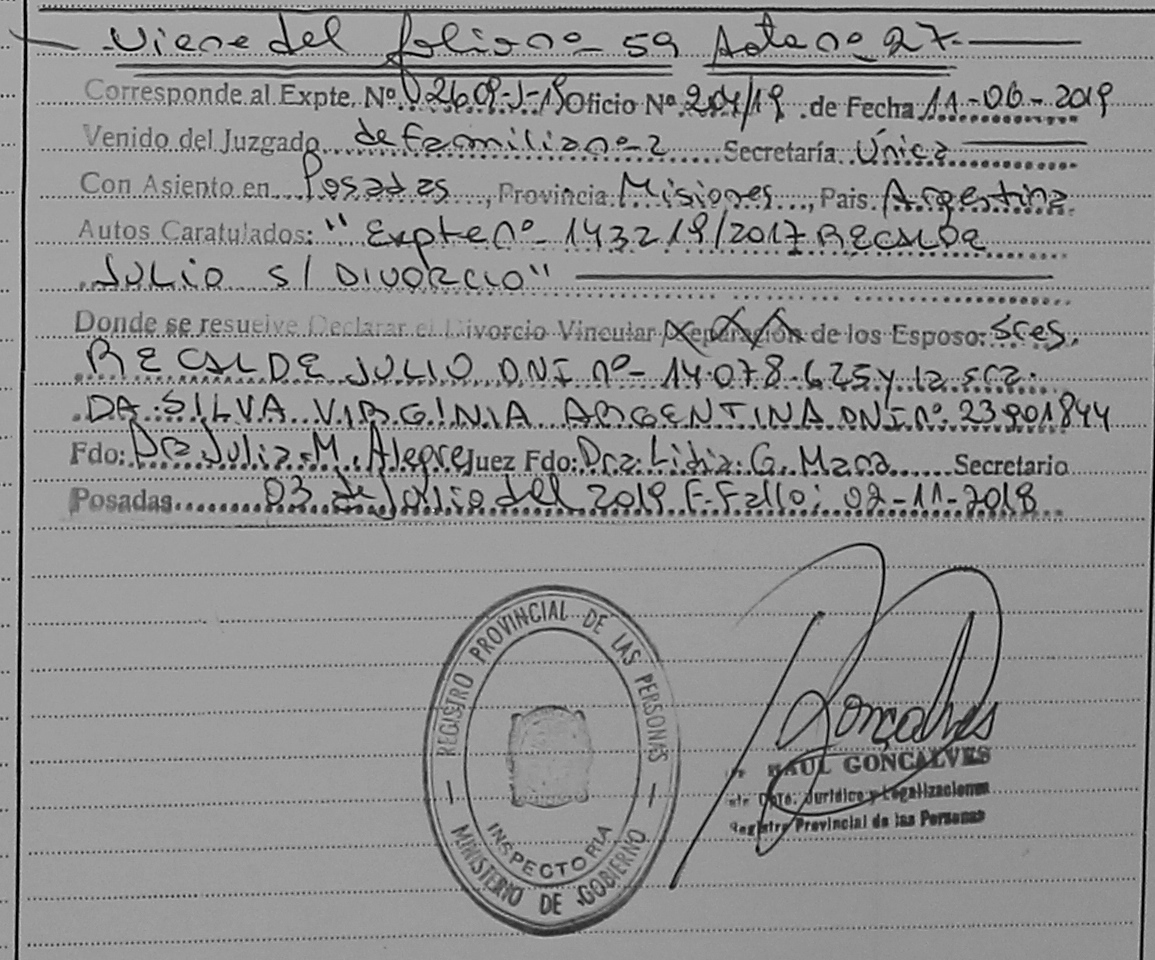 Viene del folio nº 59 Acta nº 27.
Corresponde al Expte. Nº 02609-J-19 Oficio Nº 201/19 de Fecha 11-06-2019
Venido del Juzgado de familia nº 2 Secretaría Única
Con Asiento en Posadas, Provincia: Misiones, Pais: Argentina
Autos Caratulados: "Expte nº 143219/2017 RECALDE
JULIO S/ DIVORCIO"
Donde se resuelve Declarar el Divorcio Vincular Separación de los Esposo: Sres.
RECALDE JULIO DNI nº 14.078.625 y la sra.
DA SILVA VIRGINIA ARGENTINA DNI nº 23901844
Fdo: Dra Julia M. Alegre Juez Fdo: Dra: Lidia G. Secretario
Posadas 03 de Julio del 2019 F. Fallo: 02-11-2018
REGISTRO PROVINCIAL DE LAS PERSONAS
INSPECTORIA
MINISTERIO DE GOBIERNO
Goncalves
RAUL GONCALVES
Dpto. Jurídico y Legalizaciones
Registro Provincial de las Personas